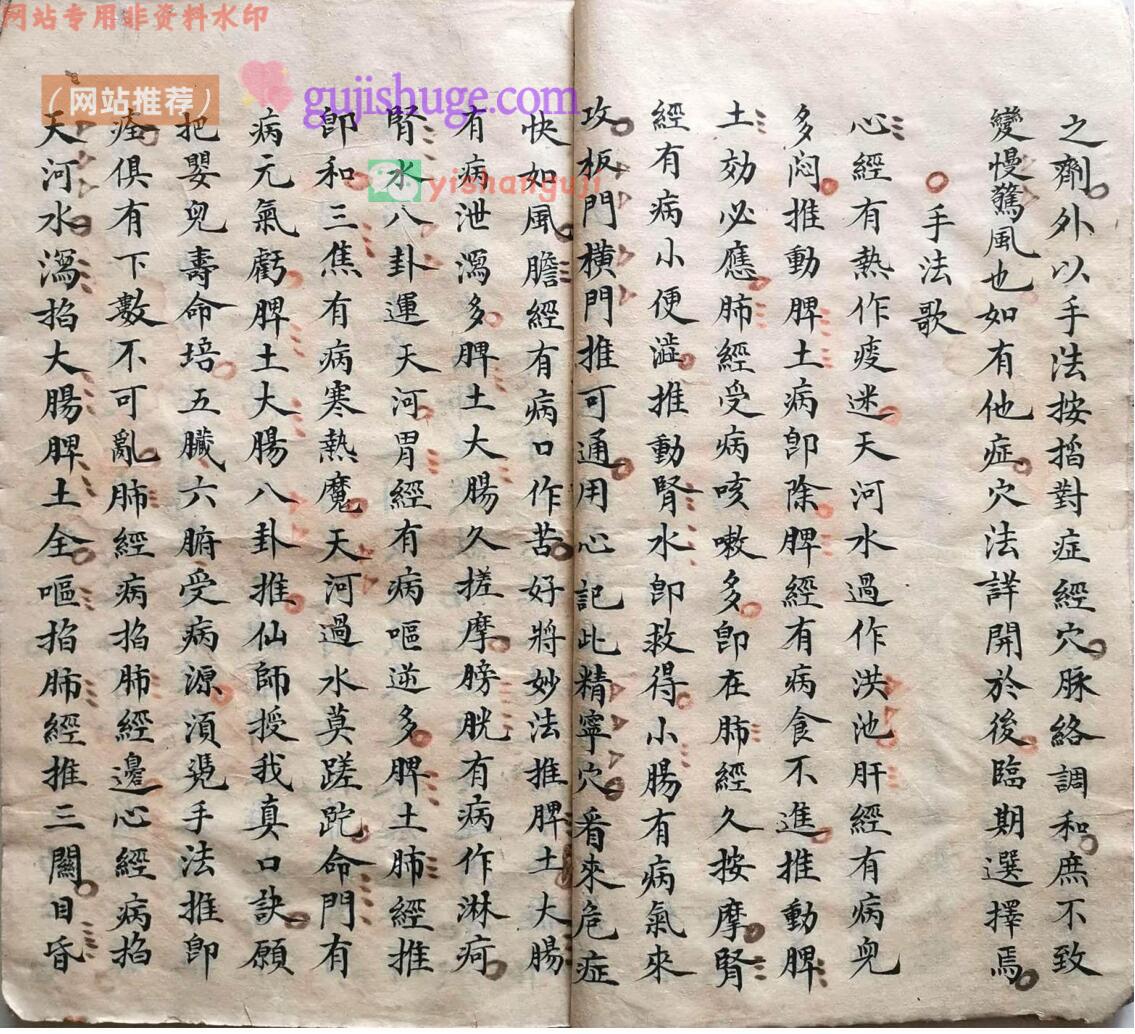 网站专用非资料水印
（网站推荐）
gujishuge.com
yishanguji
之劑外以手法按掐對症經穴脉絡調和庶不致
變慢驚風也如有他症穴法詳開於後臨期選擇焉
手法歌
心經有熱作痰迷天河水過作洪池肝經有病兒
多闷推動脾土病卽除脾經有病食不進推動脾
土効必應肺經受病咳嗽多卽在肺經久按摩腎
經有病小便澁推動腎水卽救得小腸有病氣來
攻板門橫門推可通用心記此精寧穴看來危症
快如風膽經有病口作苦好將妙法推脾土大腸
有病泄瀉多脾土大腸久搓摩膀胱有病作淋疴
腎水八卦運天河胃經有病嘔逆多脾土肺經推
卽和三焦有病寒熱魔天河過水莫蹉跎命門有
病元氣虧脾土大腸八卦推仙師授我真口訣願
把嬰兒壽命培五臟六腑受病源湏凴手法推卽
痊俱有下數不可亂肺經病掐肺經邊心經病掐
天河水瀉掐大腸脾土全嘔掐肺經推三關目昏